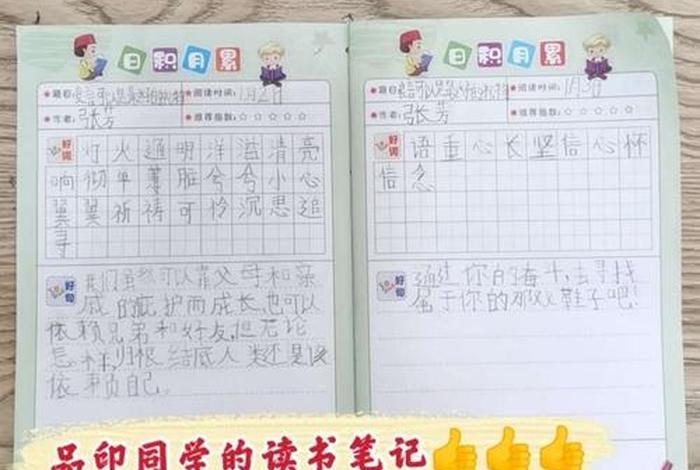 日积月累
题目:
阅读时间: 1月2日
作者: 张芳
推荐指数: ☆☆☆☆☆
好词
灯火通明洋溢清亮
响彻平萧脏兮兮小心
翼翼祈祷可怜沉思追
寻
好句
我们虽然可以靠父母和亲
戚的庇护而成长,也可以
依赖兄弟和好友,但无论
怎样,归根结底人类还是该
依靠自己。
日积月累
题目:
阅读时间: 1月3日
作者: 张芳
推荐指数: ☆☆☆☆☆
好词
语重心长坚信心怀
信念
好句
通过你的奋斗,去寻找
属于你的那双鞋子吧!
品印同学的读书笔记👍👍👍